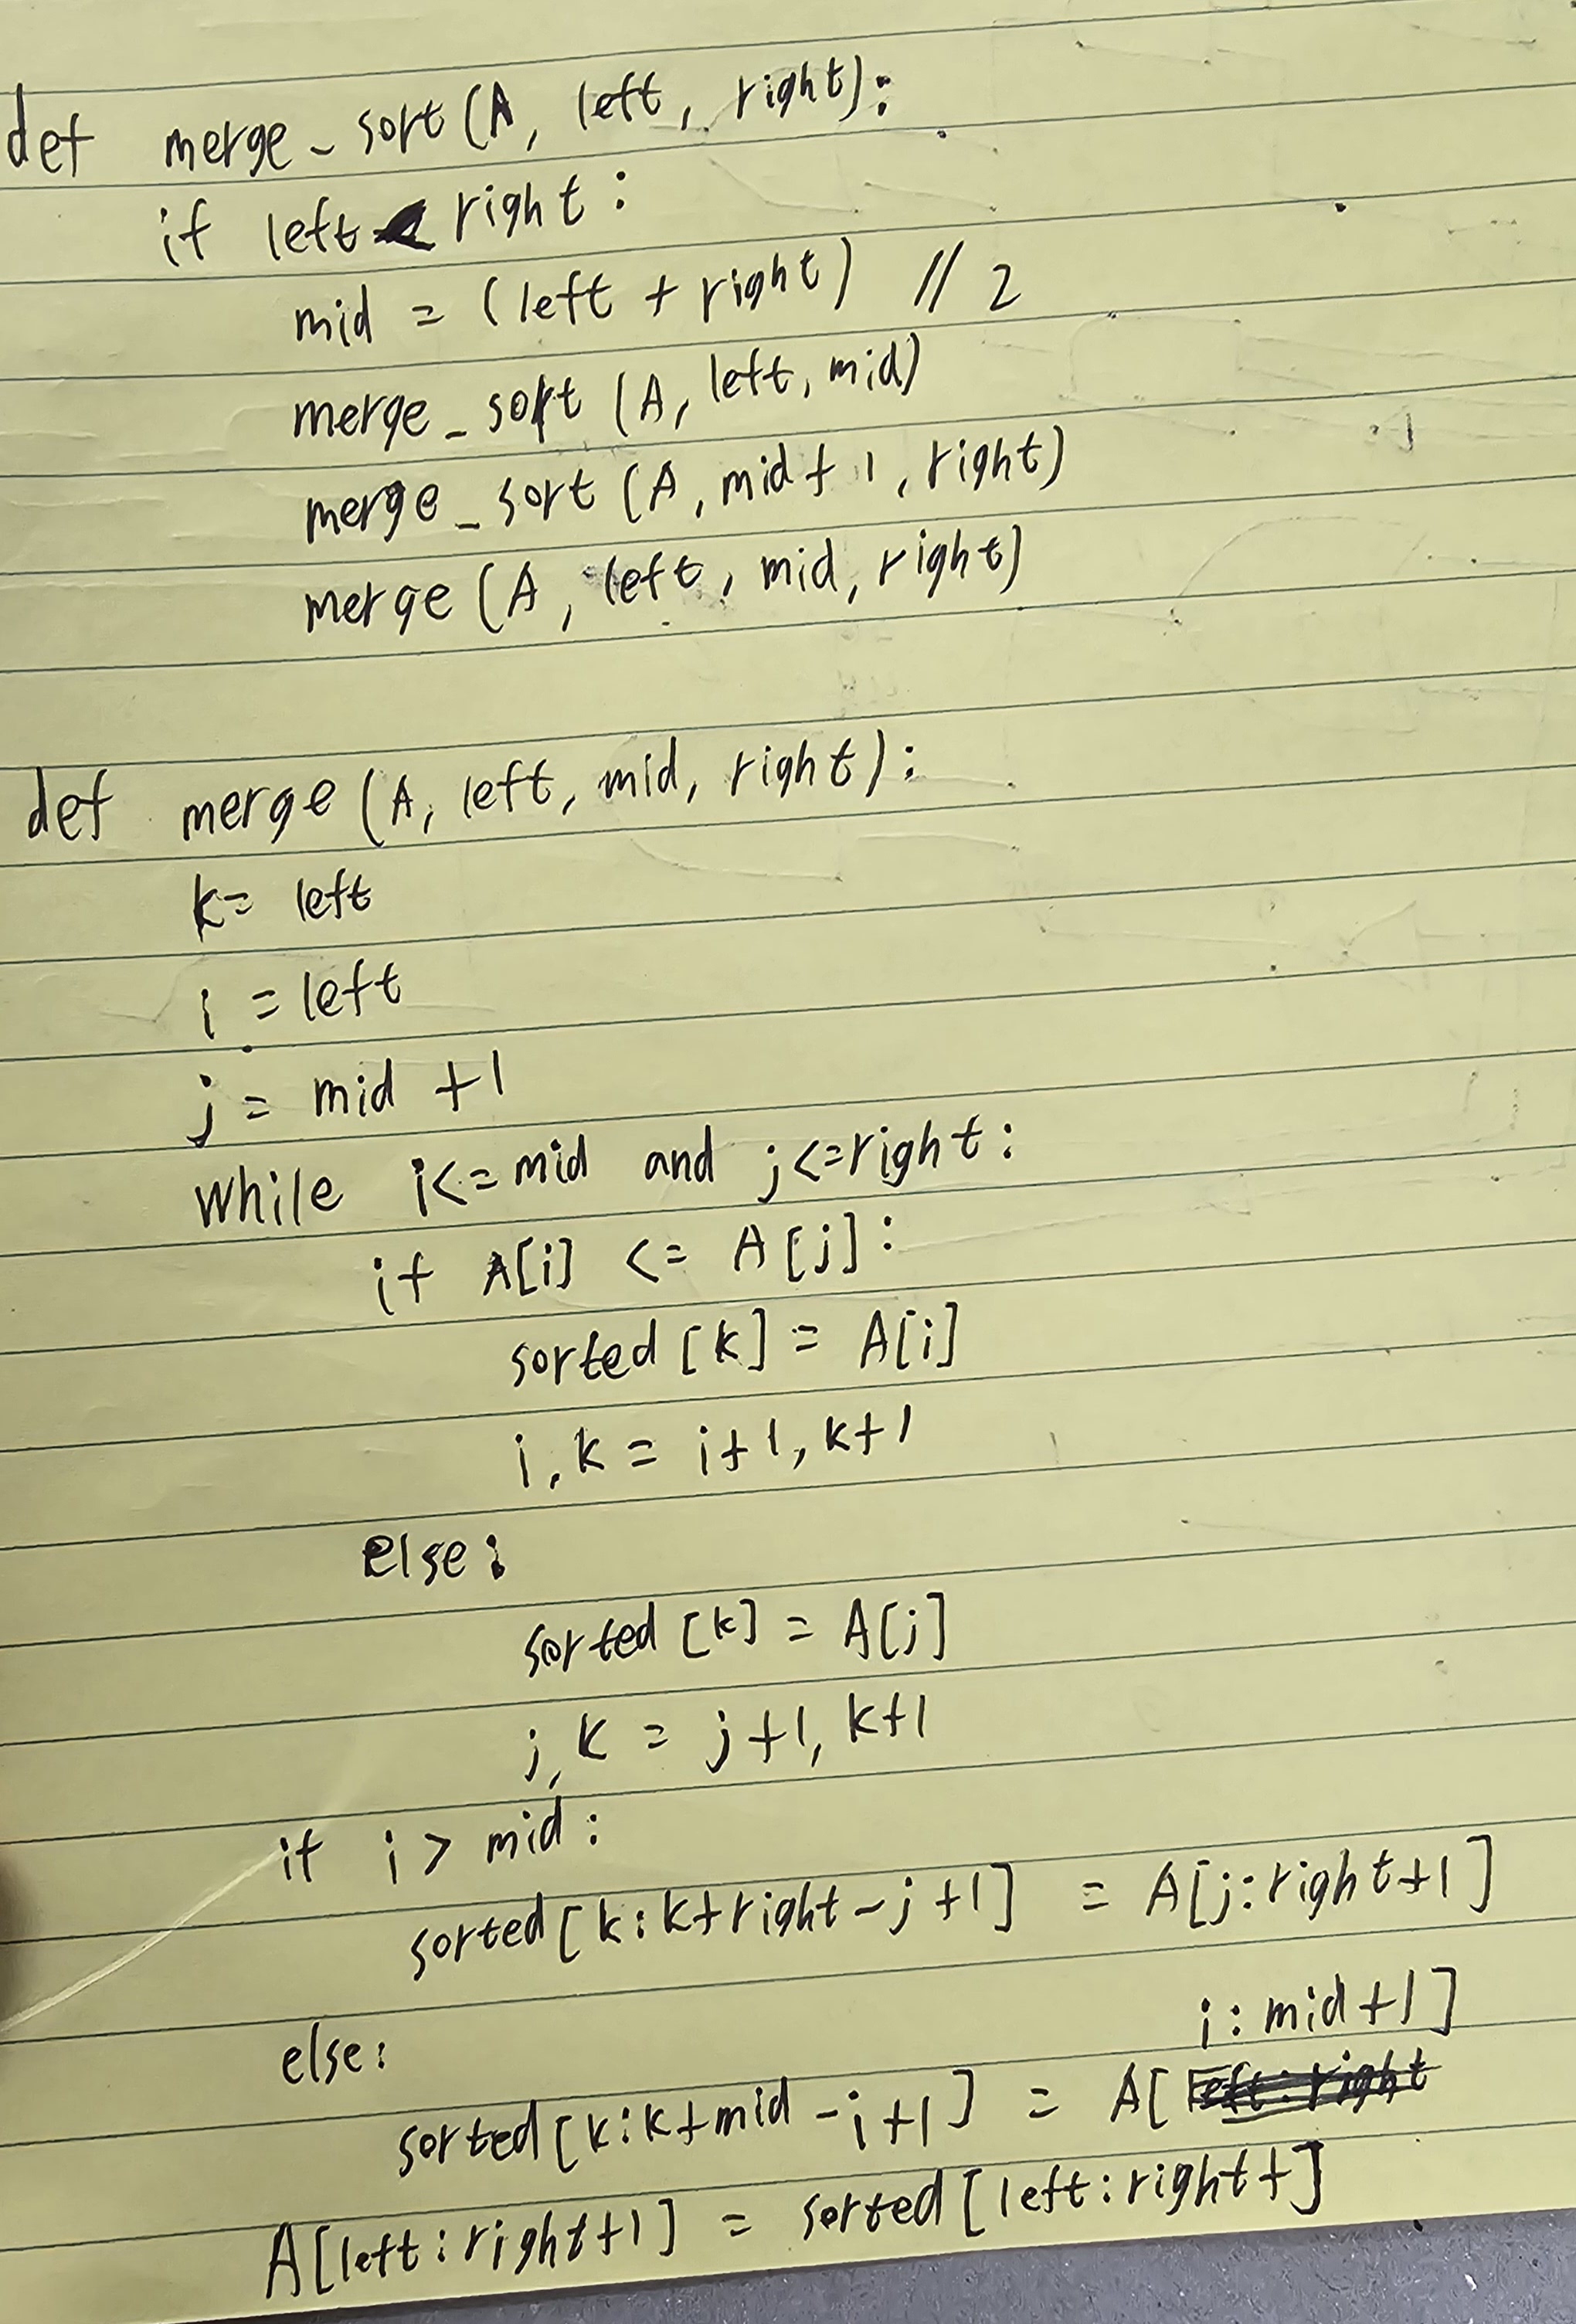 def merge_sort(A, left, right):
if left < right:
mid = (left + right) // 2
merge_sort (A, left, mid)
merge_sort (A, mid+1, right)
merge (A, left, mid, right)
def merge (A, left, mid, right):
k = left
i = left
j = mid +1
while i<=mid and j<=right:
if A[i] <= A[j]:
sorted [k] = A[i]
i, k = i+1, k+1
else:
sorted [k] = A[j]
j, k = j+1, k+1
if i > mid:
sorted [k:k+right-j+1] = A[j:right+1]
else:
i:mid+1]
sorted [k:k+mid-i+1] = A[left:right
A[left:right+1] = sorted [left:right+]